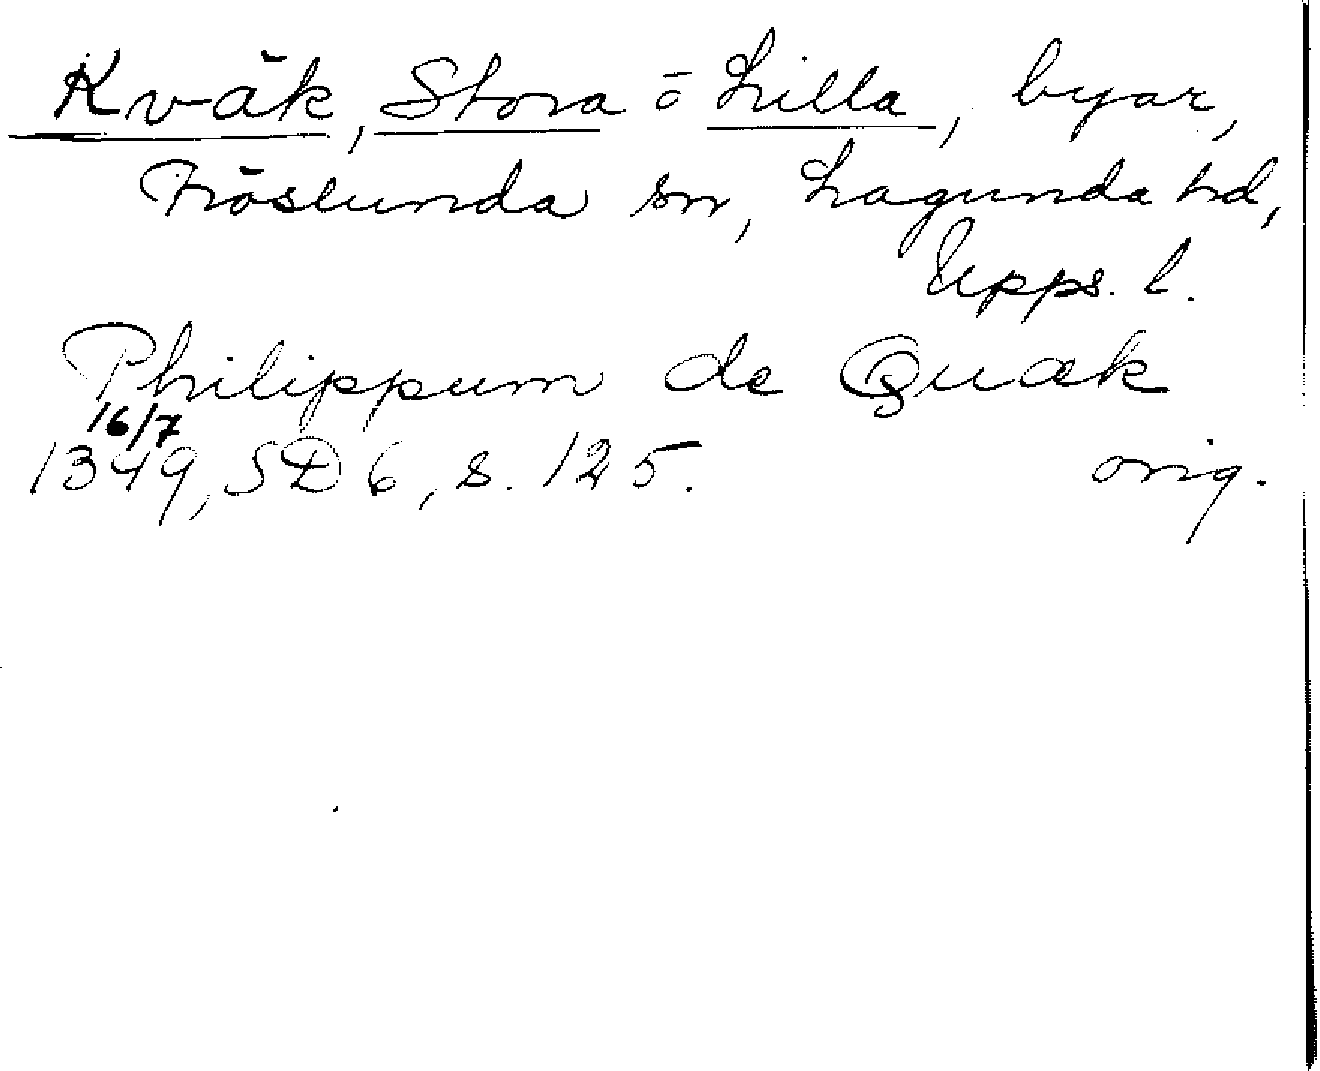 Kväk, Stora o Lilla, byar,
Fröslunda sn, Lagunda hd,
Upps. l.
Philippum de Quæk
16/7
1349, SD 6, s. 125. orig.